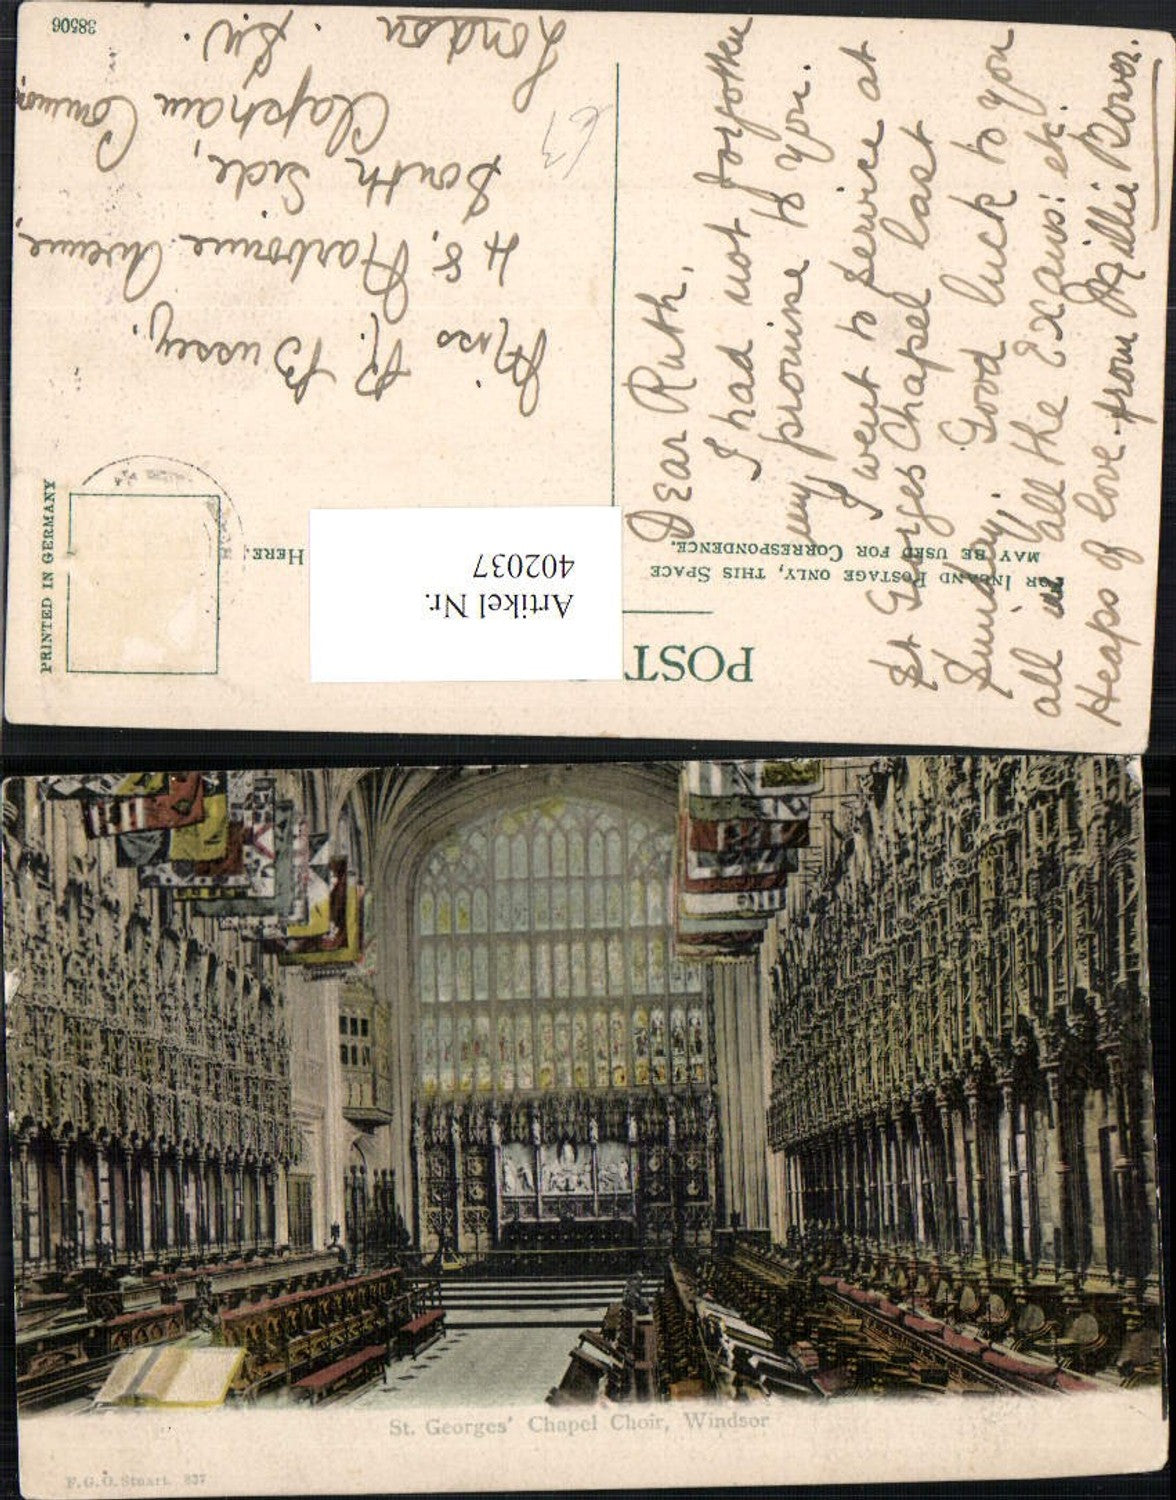 POST
FOR INLAND POSTAGE ONLY, THIS SPACE
MAY BE USED FOR CORRESPONDENCE.
HERE.
PRINTED IN GERMANY
38506
Artikel Nr.
402037
Dear Ruth,
I had not forgotten
my promise to you.
I went to service at
St Georges Chapel last
Sunday. Good luck to you
all in all the Exams: etc.
Heaps of love from Millie Bower.
Miss R. Bussey.
48, Narbonne Avenue,
South Side,
Clapham Common
London. S.W.
St. Georges' Chapel Choir, Windsor
F.G.O. Stuart. 837